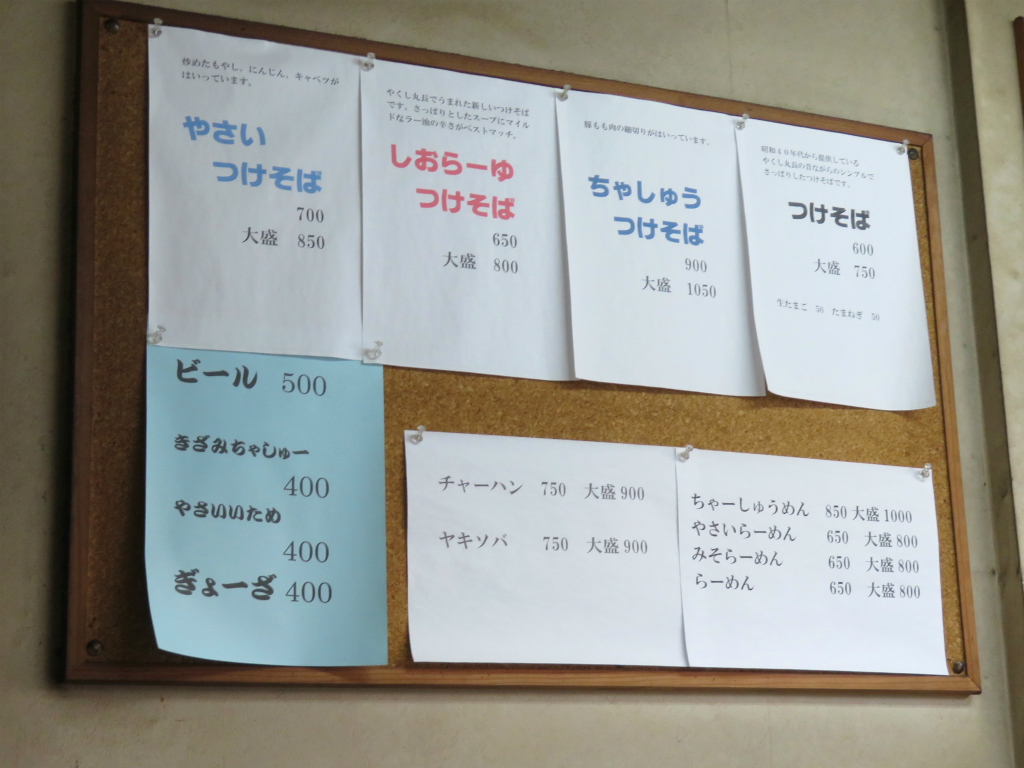 炒めたもやし、にんじん、キャベツが
はいっています。
やさい
つけそば
700
大盛 850
やくし丸長でうまれた新しいつけそば
です。さっぱりとしたスープにマイル
ドなラー油の辛さがベストマッチ。
しおらーゆ
つけそば
650
大盛 800
豚もも肉の細切りがはいっています。
ちゃしゅう
つけそば
900
大盛 1050
昭和40年代から提供している
やくし丸長の昔ながらのシンプルで
さっぱりしたつけそばです。
つけそば
600
大盛 750
生たまご 50 たまねぎ 50
ビール 500
きざみちゃしゅー
400
やさいいため
400
ぎょーざ 400
チャーハン 750 大盛900
ヤキソバ 750 大盛900
ちゃーしゅうめん 850 大盛1000
やさいらーめん 650 大盛800
みそらーめん 650 大盛800
らーめん 650 大盛800